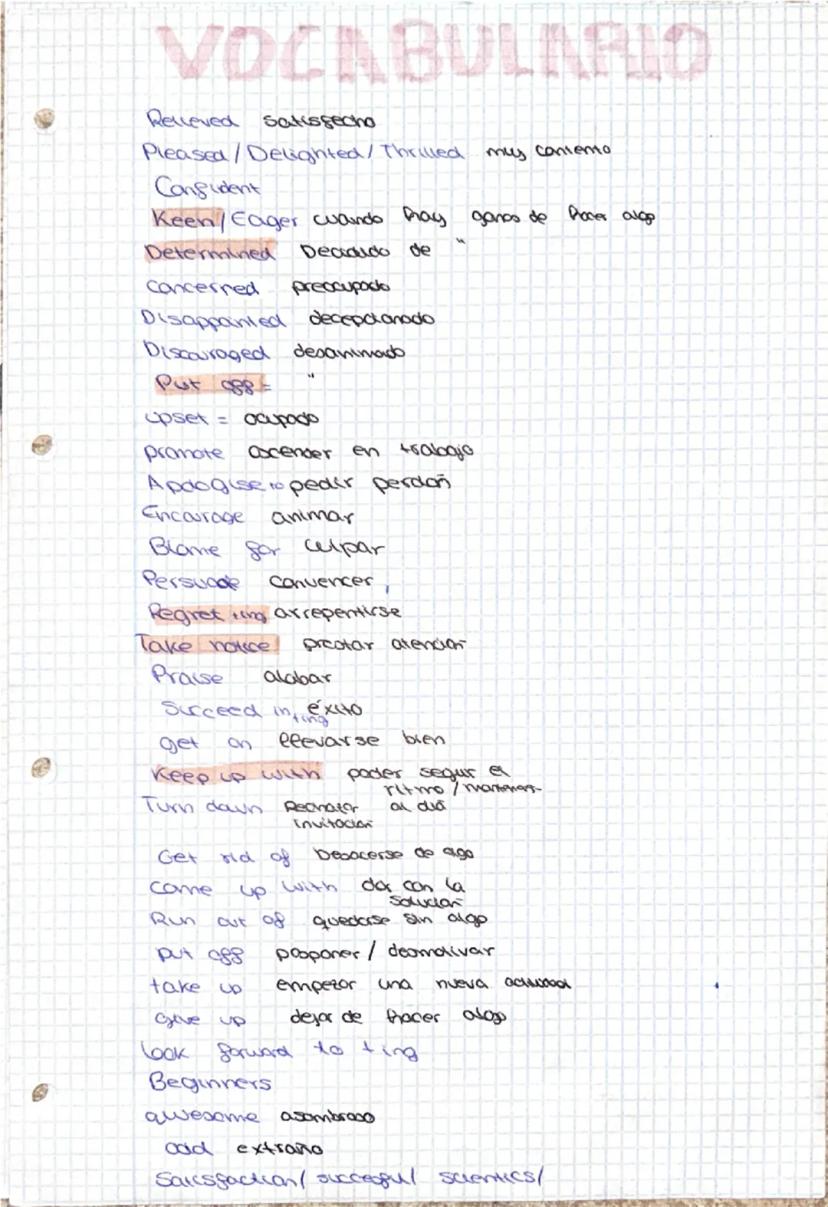 VOCABULARIO
Relieved satisfecho
Pleased / Delighted / Thrilled muy contento
Confident
Keen / Eager cuando hay ganas de hacer algo
Determined Decidido de "
concerned preocupado
Disappointed decepcionado
Discouraged desanimado
Put off = "
upset = ocupado
promote ascender en trabajo
Apologise to pedir perdón
Encourage animar
Blame for culpar
Persuade convencer
Regret +ing arrepentirse
Take notice prestar atención
Praise alabar
Succeed in +ing éxito
get on llevarse bien
Keep up with poder seguir el
ritmo / mantener
Turn down Rechazar al día
invitación
Get rid of Desacerse de algo
Come up with dar con la
solución
Run out of quedarse sin algo
put off posponer / desmotivar
take up empezar una nueva actividad
give up dejar de hacer algo
look forward to +ing
Beginners
awesome asombroso
odd extraño
Satisfaction / succesful / scientics /